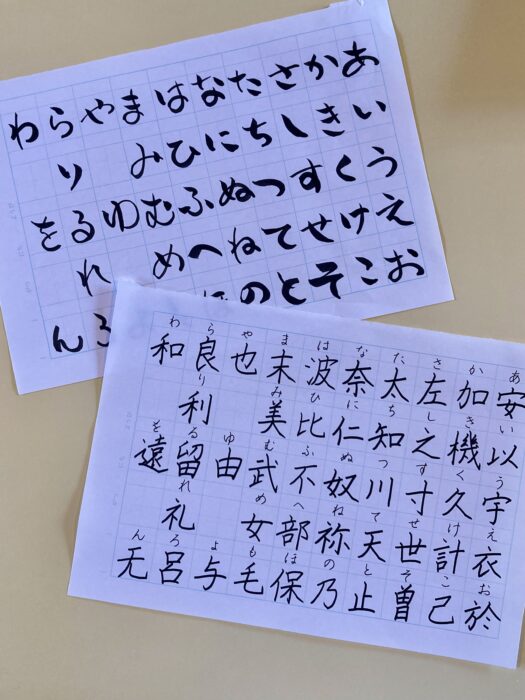 あいうえお
かきくけこ
さしすせそ
たちつてと
なにぬねの
はひふへほ
まみむめ
やゆ
らりるれろ
わをん
あ安い以う宇え衣お於
か加き機く久け計こ己
さ左し之す寸せ世そ曽
た太ち知つ川て天と止
な奈に仁ぬ奴ね祢の乃
は波ひ比ふ不へ部ほ保
ま末み美む武め女も毛
や也ゆ由よ与
ら良り利る留れ礼ろ呂
わ和を遠ん无